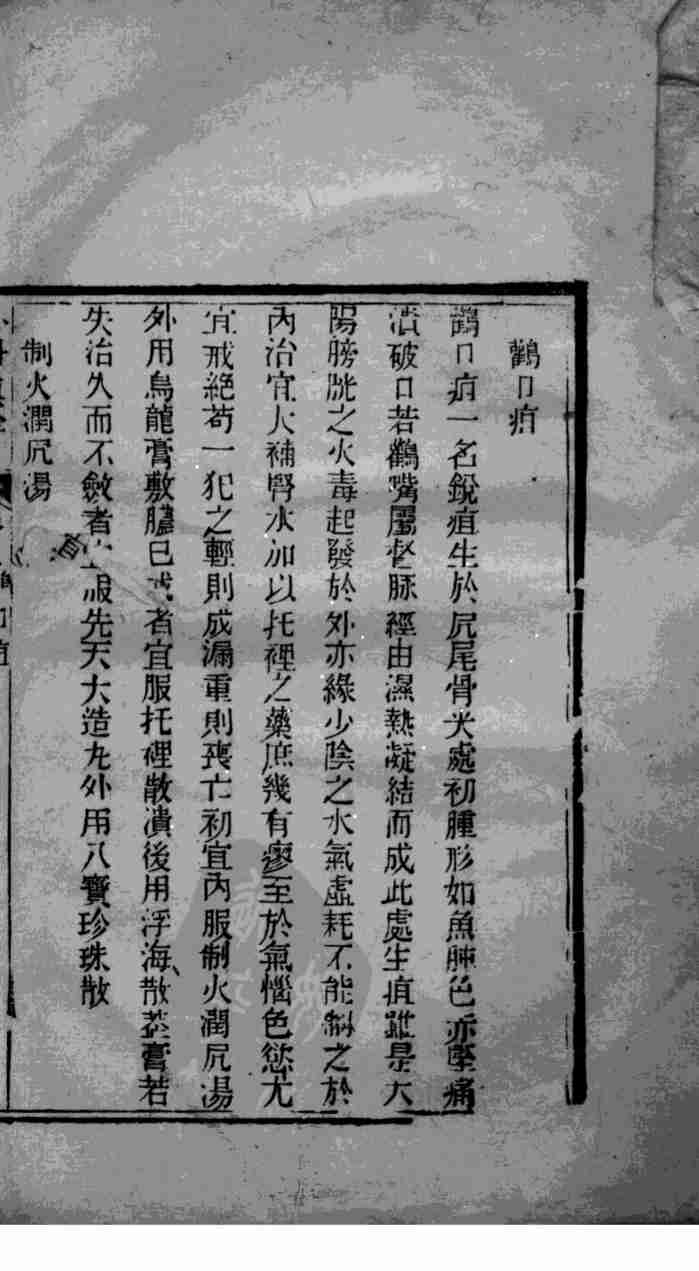 鸛口疽
鸛口疽一名銳疽生於尻尾骨尖處初腫形如魚肫色赤堅痛
潰破口若鸛嘴屬督脉經由濕熱凝結而成此處生疽雖是太
陽膀胱之火毒起發於外亦緣少陰之水氣虛耗不能制之於
內治宜大補腎水加以托裡之藥庶幾有瘳至於氣惱色慾尤
宜戒絕苟一犯之輕則成漏重則喪亡初宜內服制火潤尻湯
外用烏龍膏敷膿已成者宜服托裡散潰後用浮海散蓋膏若
失治久而不斂者宜服先天大造丸外用八寶珍珠散
制火潤尻湯